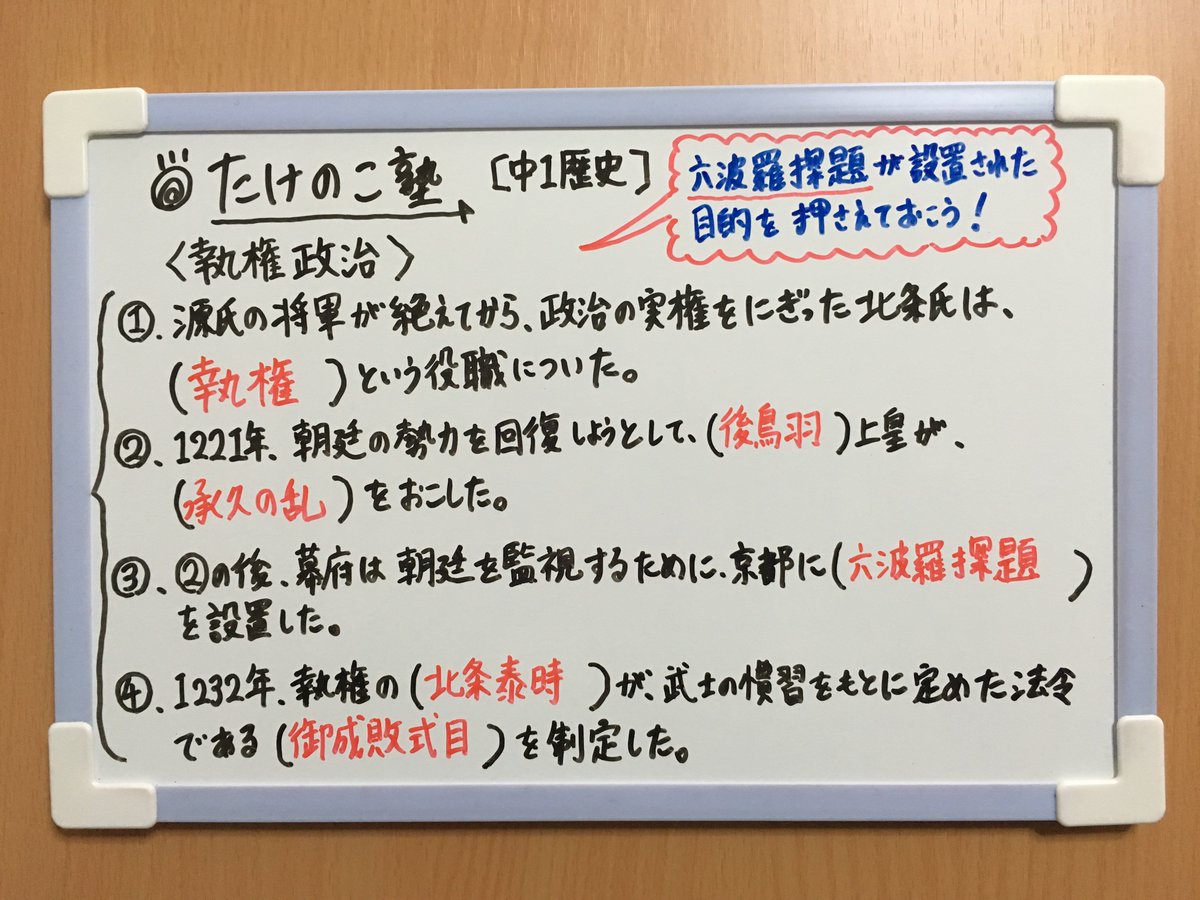 たけのこ塾 [中1歴史]
六波羅探題が設置された
目的を押さえておこう!
〈執権政治〉
①. 源氏の将軍が絶えてから、政治の実権をにぎった北条氏は、
(執権)という役職についた。
②. 1221年、朝廷の勢力を回復しようとして、(後鳥羽)上皇が、
(承久の乱)をおこした。
③. ②の後、幕府は朝廷を監視するために、京都に(六波羅探題)
を設置した。
④. 1232年、執権の(北条泰時)が、武士の慣習をもとに定めた法令
である(御成敗式目)を制定した。